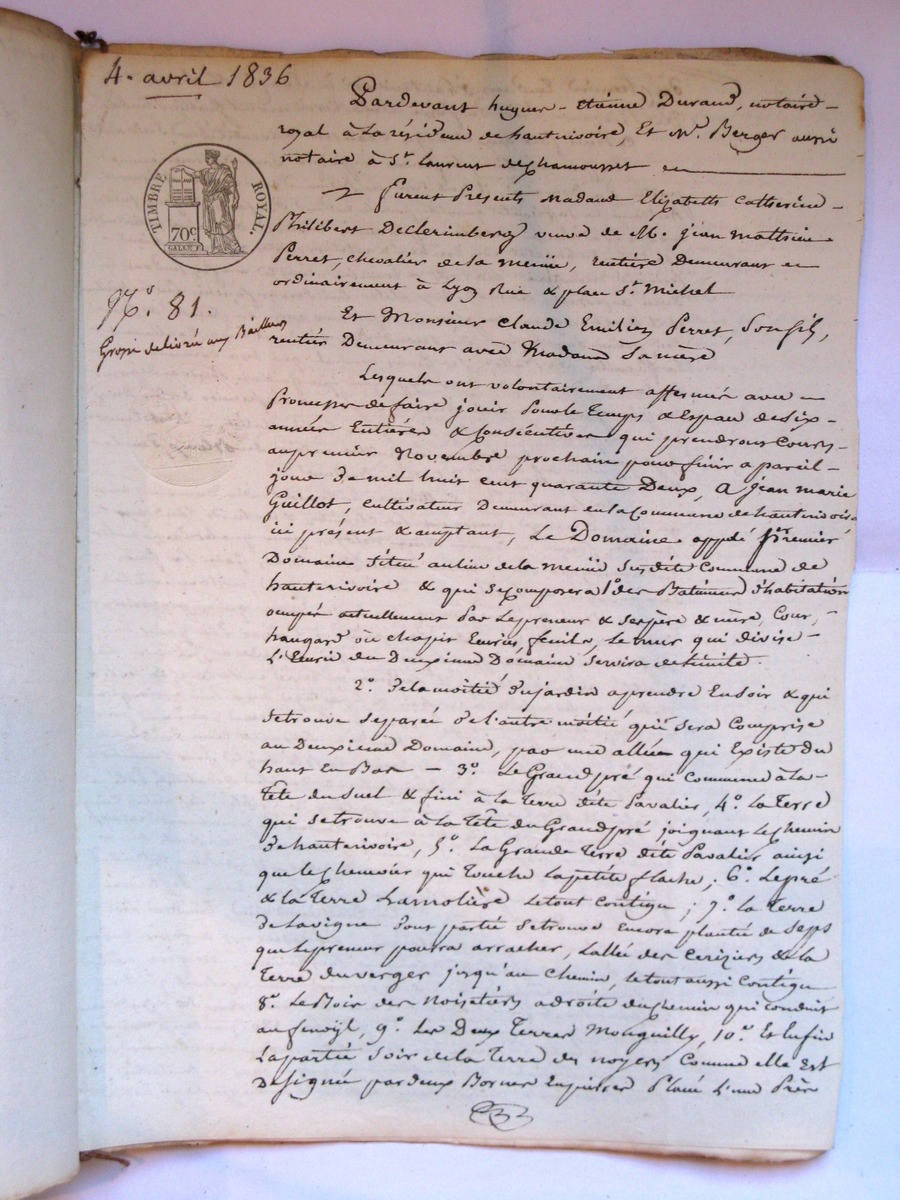 4. avril 1836
TIMBRE ROYAL.
70c
N.o 81.
Grosse delivrée aux Bailleurs
Pardevant hugues-etienne Durand, notaire
royal à la résidence de hauterivoire, Et Me. Berger aussi
notaire à St. Laurent de chamousset
furent Presents Madame Elizabeth Catherine
Philibert DeClerimberg veuve de M. jean mathieu
Perret, chevalier de la menüe, rentière Demeurant
ordinairement à Lyon Rue & place St. Michel
Et Monsieur Claude Emilien Perret, Son fils,
rentier Demeurant avec Madame Sa mère
Lesquels ont volontairement affermé avec
Promesse de faire jouir Pour le Temps & Espace de Six
années Entières & Consécutives qui prendront Cours
au premier Novembre prochain pour finir a pareil
jour de mil huit cent quarante Deux, a jean marie
Guillot, cultivateur Demeurant en la Commune de hauterivoire
ici présent & acceptant, Le Domaine appelé Premier
Domaine Situé au lieu de la menüe Susdite Commune de
hauterivoire & qui se composera 1o. des Batimens d'habitation
occupés actuellement Par Le preneur & ses père & mère, Cour,
hangard ou chapit Ecuries, fenils, le mur qui divise
L'Ecurie du Deuxieme Domaine Servira de limite.
2o. De la moitié du jardin a prendre En soir & qui
se trouve Separée de l'autre moitié qui Sera Comprise
au Deuxieme Domaine, par une allée qui Existe du
haut En Bas - 3o. Le Grand pré qui Commence à la
Tête du Suel & fini à la Terre dite Pavalier, 4o. La Terre
qui se trouve à la Tête du Grand pré joignant Le chemin
de hauterivoire, 5o. La Grande Terre dite Pavalier ainsi
que le chenevier qui Touche la petite flache; 6o. Le pré
& la Terre Lamolière Le tout Contigu; 7o. La Terre
de La vigne dont partie Se trouve Encore plantée de Seps
que Le preneur pourra arracher, L'allée des Ceriziers & la
Terre du verger jusqu'au Chemin, le tout aussi Contigu
8o. Le Bois des Noisetiers a droite du Chemin qui conduit
au fenoyl, 9o. Les Deux Terres Monguilly, 10o. Et Enfin
La partie Soir de la Terre des noyers Comme elle Est
Designée par deux Bornes En pierres Placé L'une Près